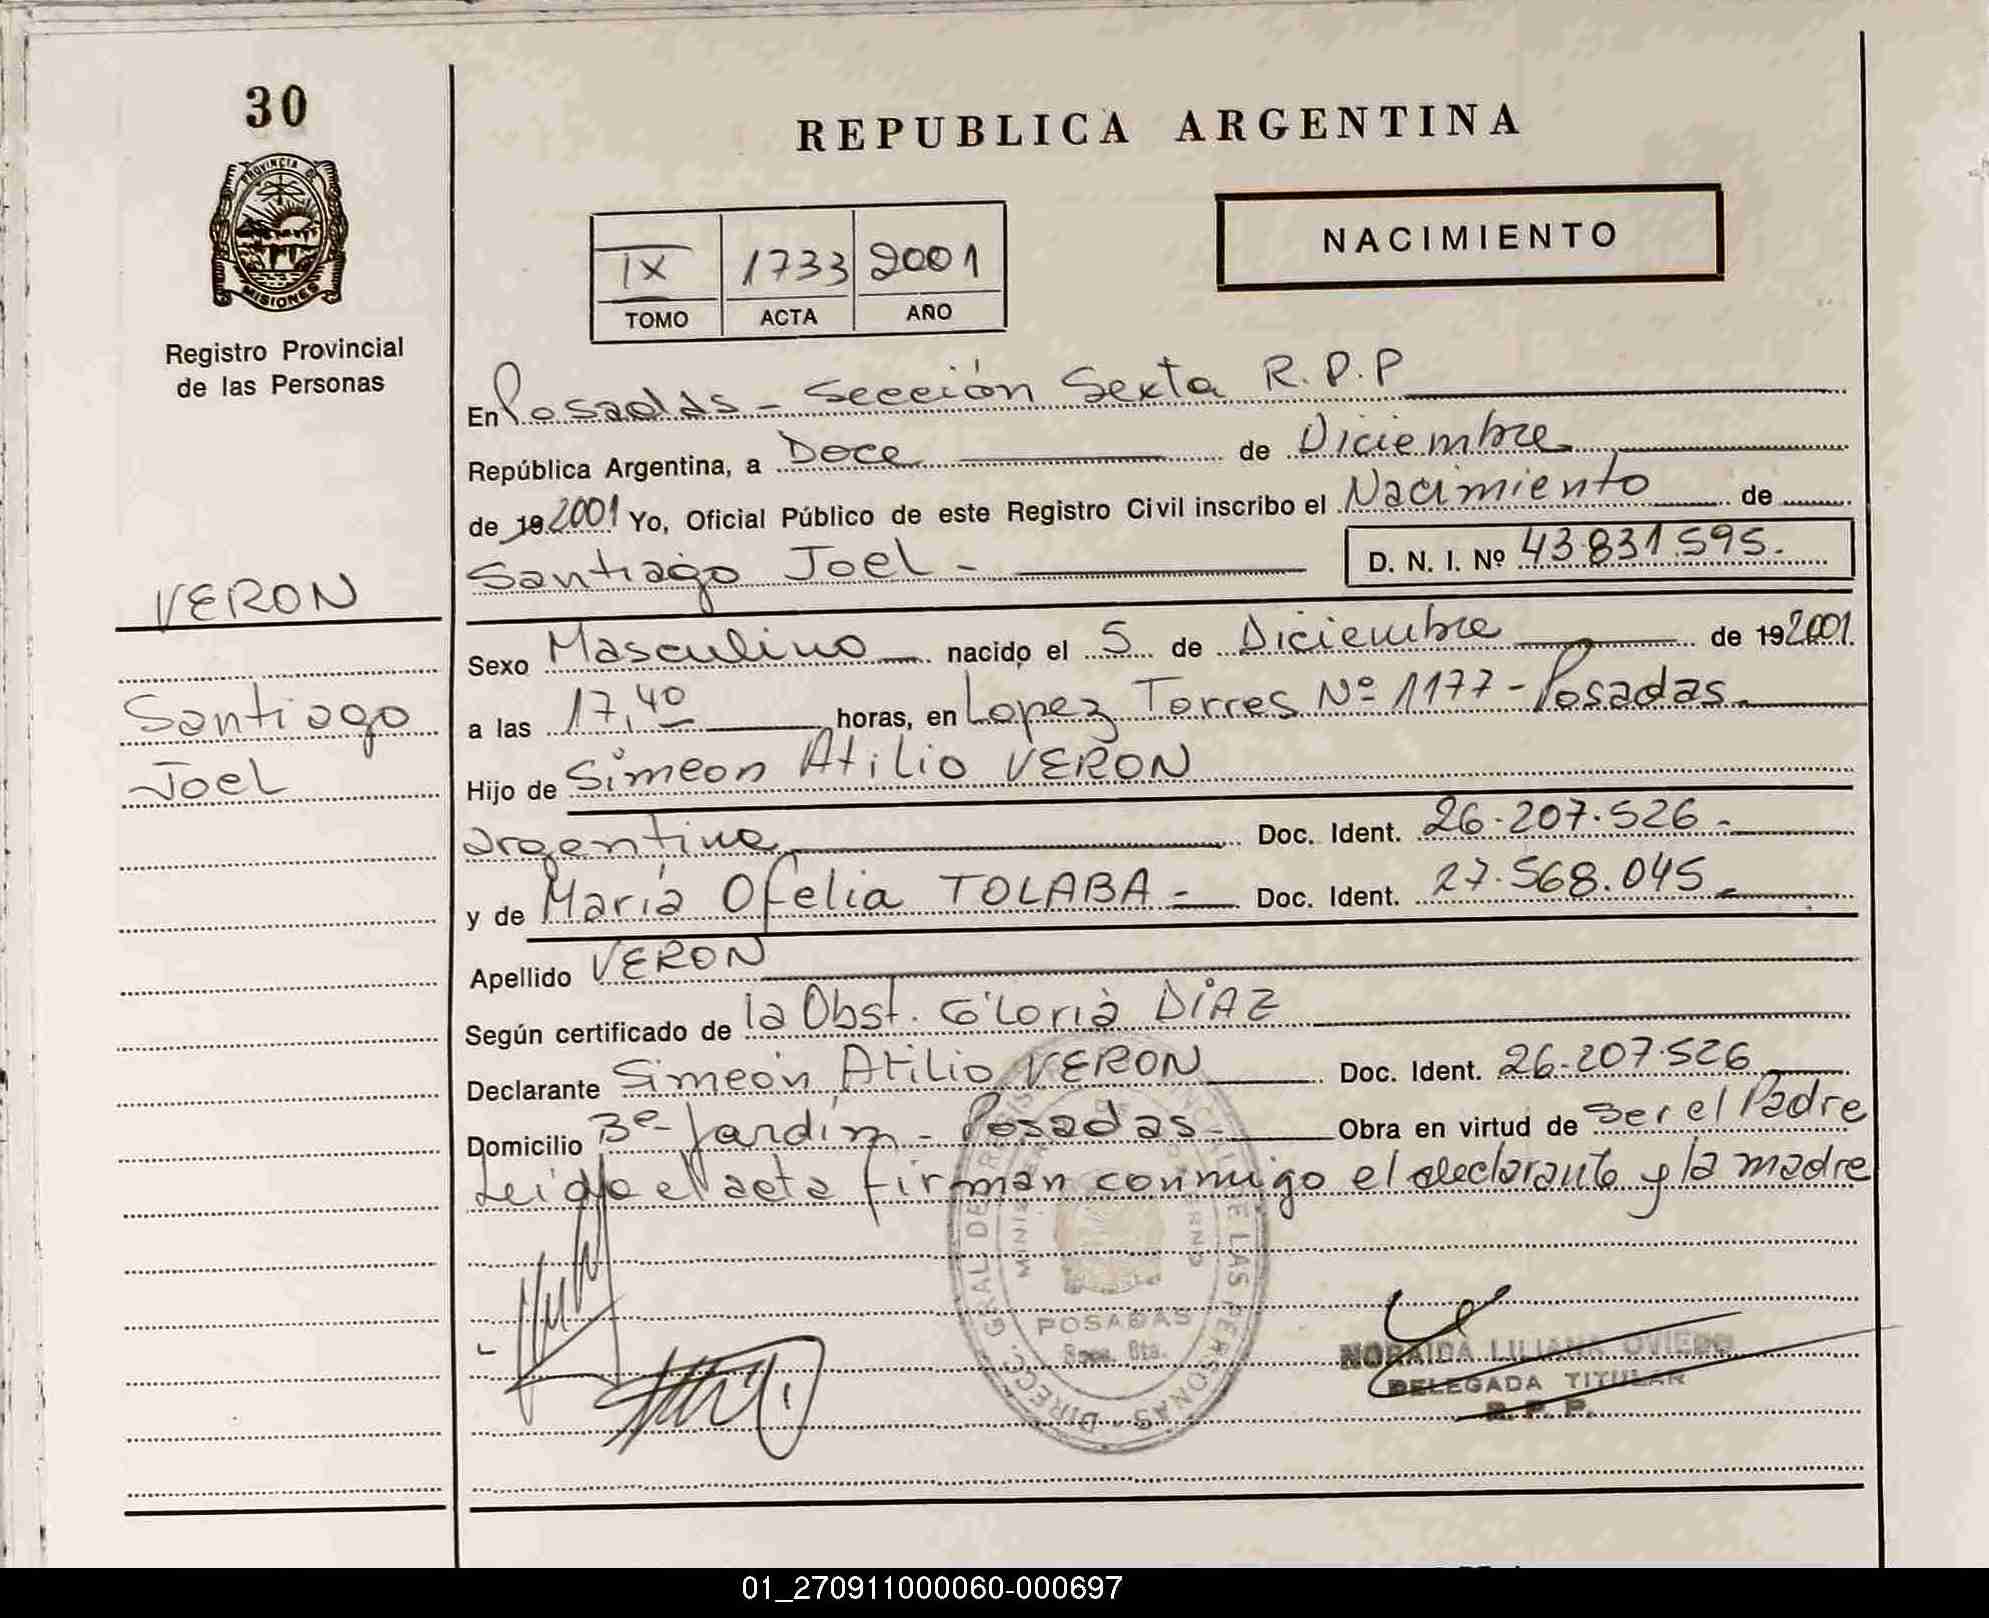 30
PROVINCIA DE
MISIONES
Registro Provincial
de las Personas
VERON
Santiago
Joel
REPUBLICA ARGENTINA
NACIMIENTO
IX 1733 2001
TOMO ACTA AÑO
En Posadas - Sección Sexta R.P.P
República Argentina, a Doce de Diciembre
de 19 2001 Yo, Oficial Público de este Registro Civil inscribo el Nacimiento de
Santiago Joel - D. N. I. Nº 43.831.595.
Sexo Masculino nacido el 5 de Diciembre de 19 2001.
a las 17,40 horas, en Lopez Torres Nº 1177 - Posadas.
Hijo de Simeon Atilio VERON
argentina Doc. Ident. 26.207.526 -
y de María Ofelia TOLABA - Doc. Ident. 27.568.045 -
Apellido VERON
Según certificado de la Obst. Gloria DIAZ
Declarante Simeón Atilio VERON Doc. Ident. 26.207.526
Domicilio Bº Jardín - Posadas - Obra en virtud de ser el Padre
Leída el acta firman conmigo el declarante y la madre
DIRECC. GRAL DE REGISTRO PROVINCIAL DE LAS PERSONAS
MINISTERIO DE GOBIERNO
POSADAS
Secc. 6ta.
NORAIDA LILIANA OVIEDO
DELEGADA TITULAR
R. P. P.
01_270911000060-000697